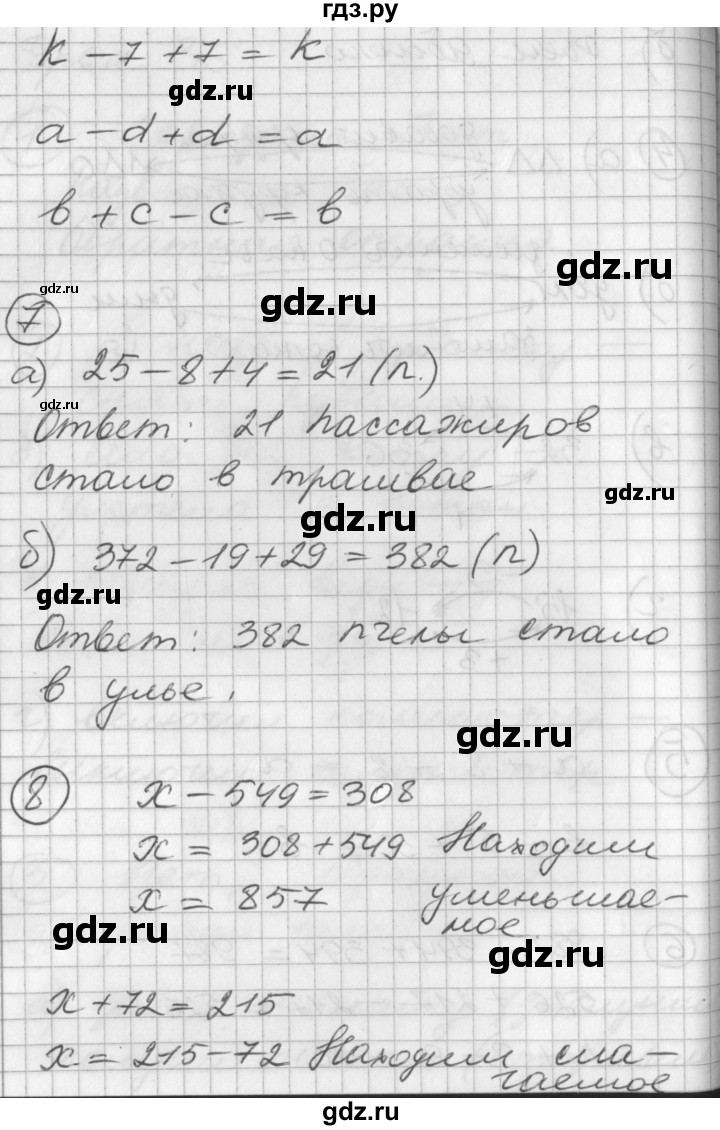 гдз.ру
k - 7 + 7 = k
gdz.ru
a - d + d = a
b + c - c = b
gdz.ru
gdz.ru
gdz.ru
7
а) 25 - 8 + 4 = 21 (п.)
gdz.ru
Ответ: 21 пассажиров
стало в трамвае
gdz.ru
gdz.ru
б) 372 - 19 + 29 = 382 (п)
gdz.ru
Ответ: 382 пчелы стало
в улье.
gdz.ru
8 x - 549 = 308
x = 308 + 549 Находим
x = 857 уменьшае-
мое
gdz.ru
gdz.ru
x + 72 = 215
x = 215 - 72 Находим сла-
гаемое
gdz.ru